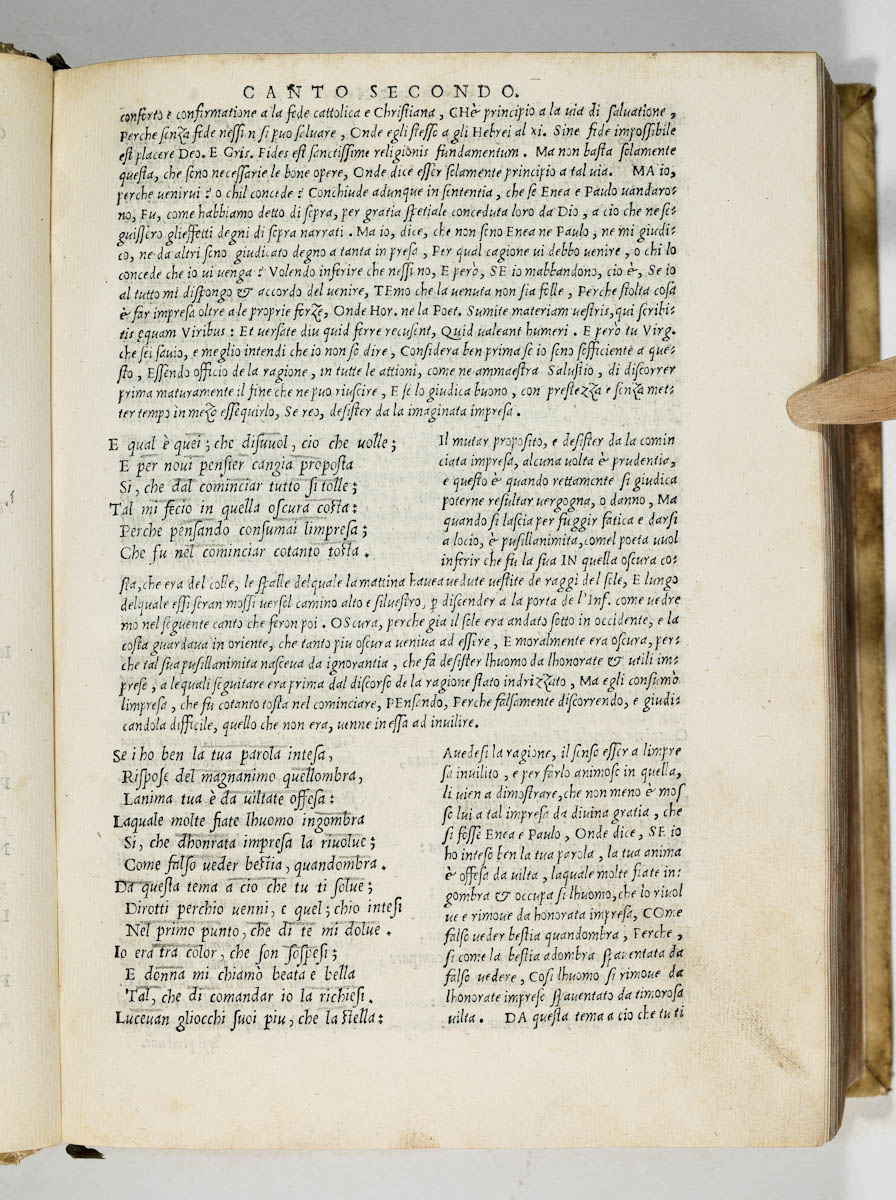 CANTO SECONDO.
conforto e confirmatione a la fede cattolica e Christiana, CHè principio a la uia di saluatione,
Perche senza fede nessun si puo saluare, Onde egli stesso a gli Hebrei al xi. Sine fide impossibile
est placere Deo. E Gris. Fides est sanctissime religionis fundamentum. Ma non basta solamente
questa, che sono necessarie le bone opere, Onde dice esser solamente principio a tal uia. MA io,
perche uenirui? o chil concede? Conchiude adunque in sententia, che se Enea e Paulo uandaro-
no, Fu, come habbiamo detto di sopra, per gratia spetiale conceduta loro da Dio, a cio che ne se-
guissero glieffetti degni di sopra narrati. Ma io, dice, che non sono Enea ne Paulo, ne mi giudi-
co, ne da altri sono giudicato degno a tanta impresa, Per qual cagione ui debbo uenire, o chi lo
concede che io ui uenga? Volendo inferire che nessuno, E però, SE io mabbandono, cio è, Se io
al tutto mi dispongo & accordo del uenire, TEmo che la uenuta non sia folle, Perche stolta cosa
è far impresa oltre a le proprie forze, Onde Hor. ne la Poet. Sumite materiam uestris, qui scribi-
tis equam Viribus: Et uersate diu quid ferre recusent, Quid ualeant humeri. E però tu Virg.
che sei sauio, e meglio intendi che io non so dire, Considera ben prima se io sono sofficiente a que-
sto, Essendo officio de la ragione, in tutte le attioni, come ne ammaestra Salustio, di discorrer
prima maturamente il fine che ne puo riuscire, E se lo giudica buono, con prestezza e senza met-
ter tempo in mezo essequirlo, Se reo, desister da la imaginata impresa.
E qual è quei; che disuuol, cio che uolle;
E per noui pensier cangia proposta
Si, che dal cominciar tutto si tolle;
Tal mi fecio in quella oscura costa:
Perche pensando consumai limpresa;
Che fu nel cominciar cotanto tosta.
Il mutar proposito, e desister da la comin
ciata impresa, alcuna uolta è prudentia,
e questo è quando rettamente si giudica
poterne resultar uergogna, o danno, Ma
quando si lascia per fuggir fatica e darsi
a locio, è pusillanimita, comel poeta uuol
inferir che fu la sua IN quella oscura co-
sta, che era del colle, le spalle delquale la mattina hauea uedute uestite de raggi del sole, E lungo
delquale essi seran mossi uersol camino alto e siluestro, p discender a la porta de l'Inf. come uedre
mo nel seguente canto che feron poi. OScura, perche gia il sole era andato sotto in occidente, e la
costa guardaua in oriente, che tanto piu oscura ueniua ad essere, E moralmente era oscura, per-
che tal sua pusillanimita nasceua da ignorantia, che fa desister lhuomo da lhonorate & utili im-
prese, a lequali seguitare era prima dal discorso de la ragione stato indrizzato, Ma egli consumò
limpresa, che fu cotanto tosta nel cominciare, PEnsando, Perche falsamente discorrendo, e giudi-
candola difficile, quello che non era, uenne in essa ad inuilire.
Se i ho ben la tua parola intesa,
Rispose del magnanimo quellombra,
Lanima tua è da uiltate offesa:
Laquale molte fiate lhuomo ingombra
Si, che dhonrata impresa la riuolue;
Come falso ueder bestia, quandombra.
Da questa tema a cio che tu ti solue;
Dirotti perchio uenni, e quel; chio intesi
Nel primo punto, che di te mi dolue.
Io era tra color, che son sospesi;
E donna mi chiamò beata e bella
Tal, che di comandar io la richiesi.
Luceuan gliocchi suoi piu, che la stella:
Auedesi la ragione, il senso esser a limpre
sa inuilito, e per farlo animoso in quella,
li uien a dimostrare, che non meno è mos
so lui a tal impresa da diuina gratia, che
si fosse Enea e Paulo, Onde dice, SE io
ho inteso ben la tua parola, la tua anima
è offesa da uilta, laquale molte fiate in-
gombra & occupa si lhuomo, che lo riuol
ue e rimoue da honorata impresa, COme
falso ueder bestia quandombra, Perche,
si come la bestia adombra spauentata da
falso uedere, Cosi lhuomo si rimoue da
lhonorate imprese spauentato da timorosa
uilta. DA questa tema a cio che tu ti